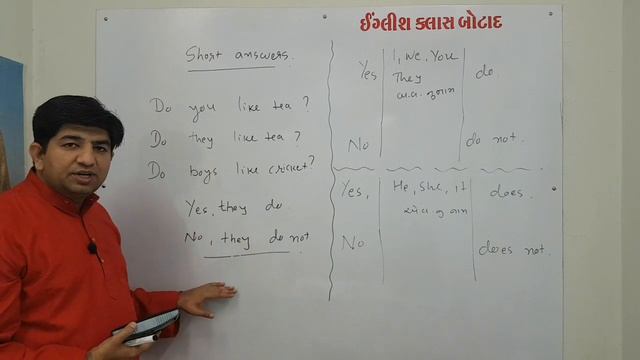 ઈંગ્લીશ ક્લાસ બોટાદ
Short answers.
Do you like tea?
Do they like tea?
Do boys like cricket?
Yes, they do.
No, they do not
Yes I, we, you do
They
બ.વ. નું નામ
No do not.
Yes, He, she, it does.
એ.વ. નું નામ
No does not.